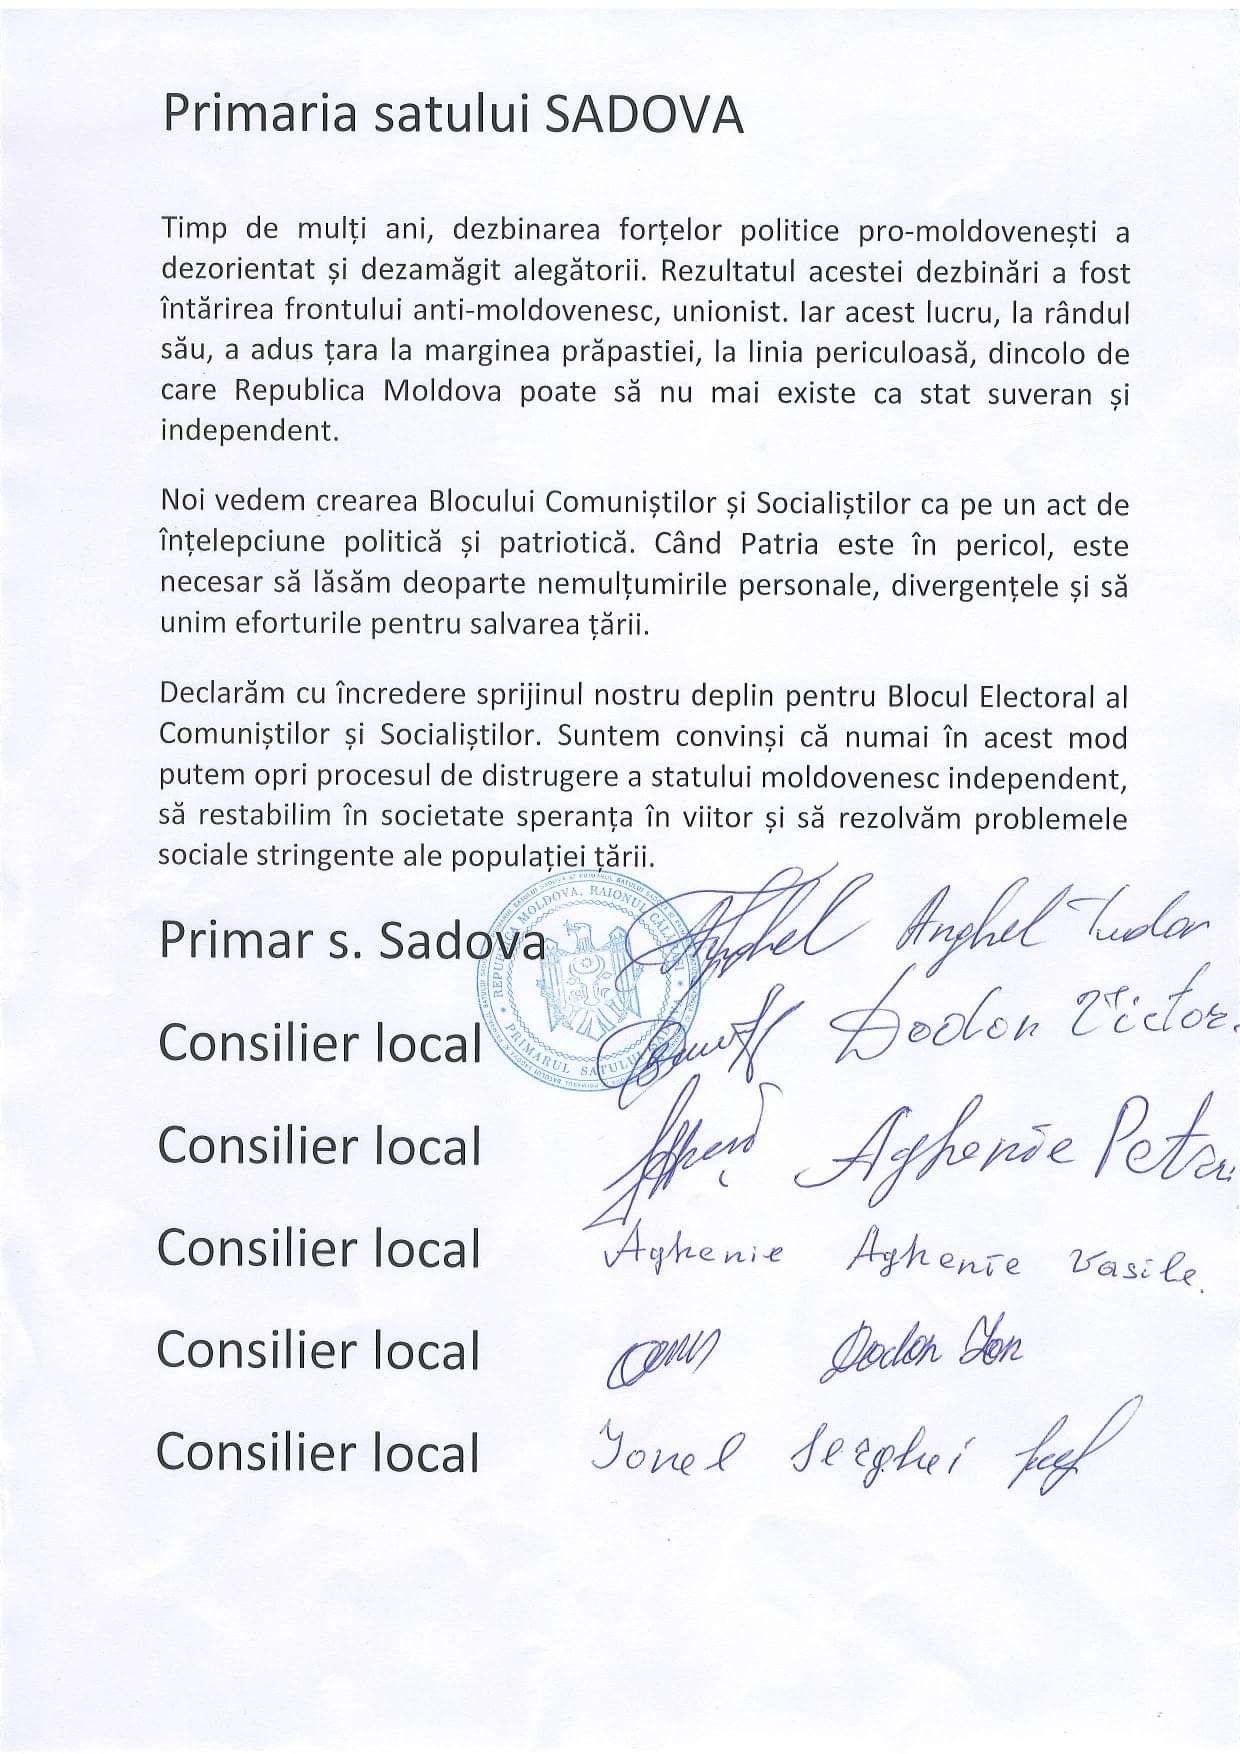 Primaria satului SADOVA
Timp de mulți ani, dezbinarea forțelor politice pro-moldovenești a
dezorientat și dezamăgit alegătorii. Rezultatul acestei dezbinări a fost
întărirea frontului anti-moldovenesc, unionist. Iar acest lucru, la rândul
său, a adus țara la marginea prăpastiei, la linia periculoasă, dincolo de
care Republica Moldova poate să nu mai existe ca stat suveran și
independent.
Noi vedem crearea Blocului Comuniștilor și Socialiștilor ca pe un act de
înțelepciune politică și patriotică. Când Patria este în pericol, este
necesar să lăsăm deoparte nemulțumirile personale, divergențele și să
unim eforturile pentru salvarea țării.
Declarăm cu încredere sprijinul nostru deplin pentru Blocul Electoral al
Comuniștilor și Socialiștilor. Suntem convinși că numai în acest mod
putem opri procesul de distrugere a statului moldovenesc independent,
să restabilim în societate speranța în viitor și să rezolvăm problemele
sociale stringente ale populației țării.
Primar s. Sadova Anghel Tudor
REPUBLICA MOLDOVA, RAIONUL CĂLĂRAȘI
PRIMARUL SATULUI SADOVA
Consilier local Dodon Victor.
Consilier local Aghenie Petru
Consilier local Aghenie Aghenie Vasile.
Consilier local Dodon Ion
Consilier local Ionel Serghei